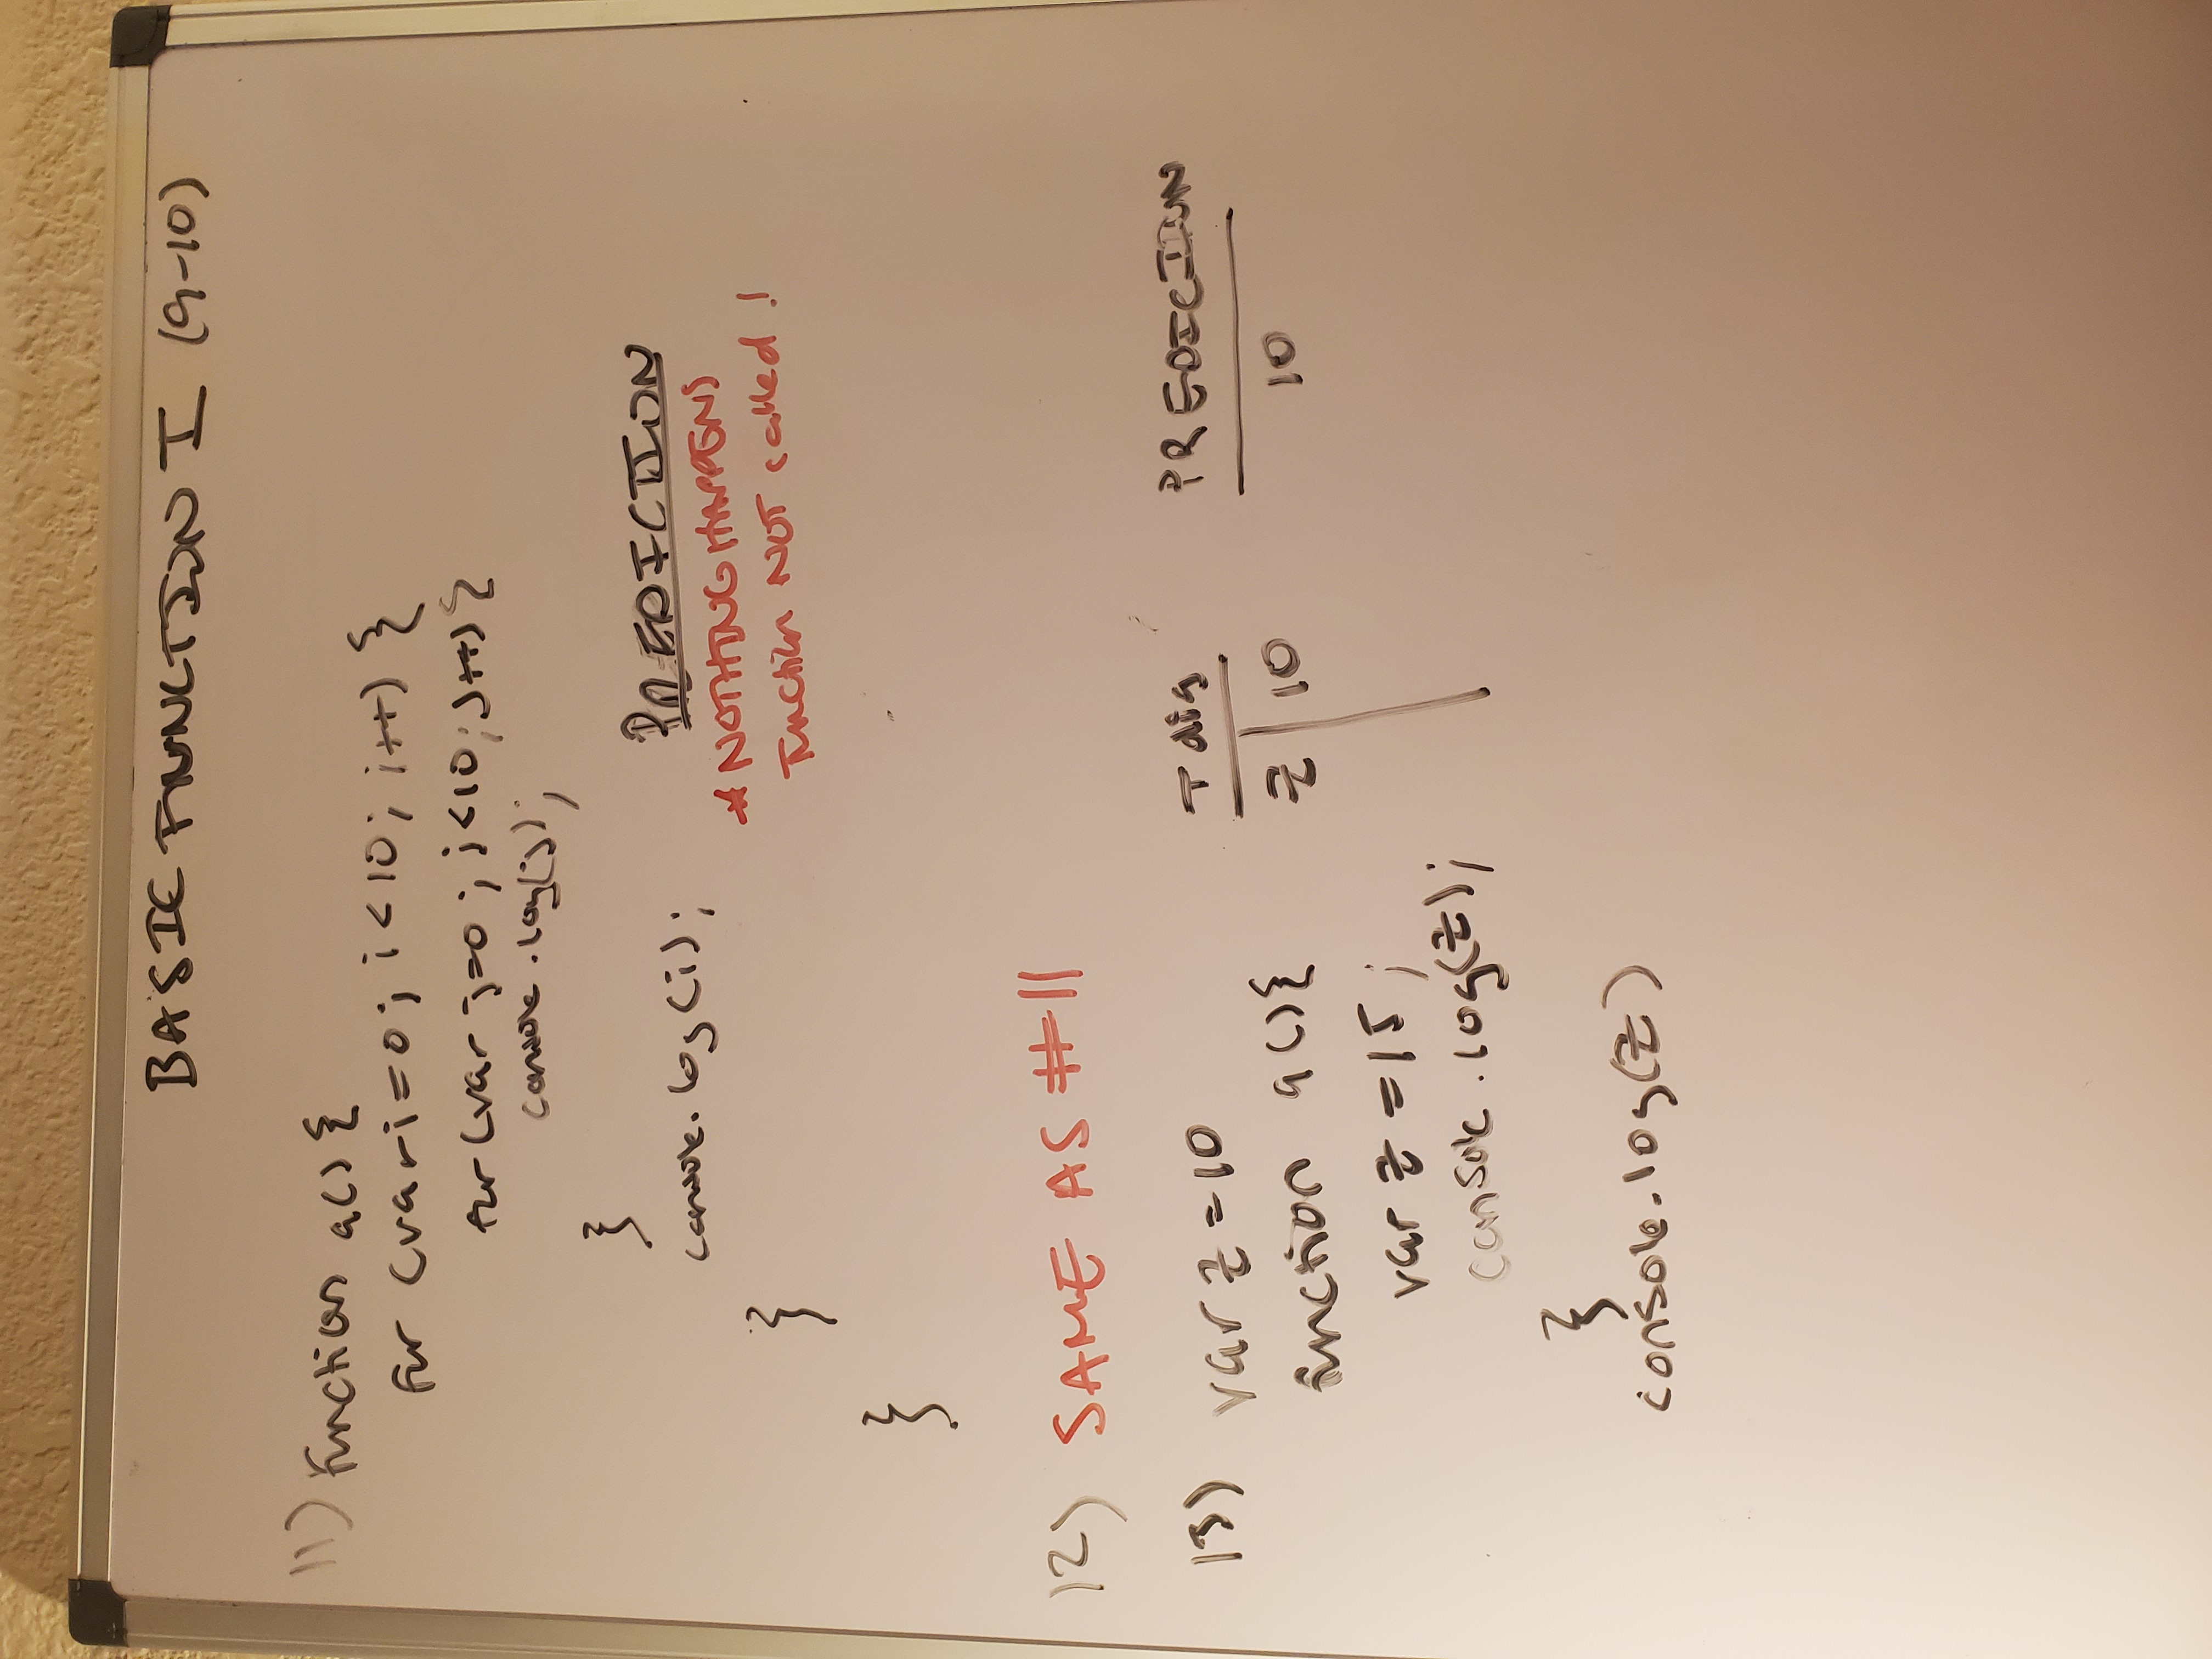 BASIC FUNCTION I (9-10)
11) function a(){
for (var i=0; i<10; i++) {
for (var j=0; j<10; j++){
console.log(j);
}
console.log(i);
}
}
PREDICTION
* NOTHING HAPPENS
Function NOT called!
12) SAME AS #11
13) var z=10
function a(){
var z=15;
console.log(z);
}
console.log(z)
T dig
z 10
PREDICTION
10